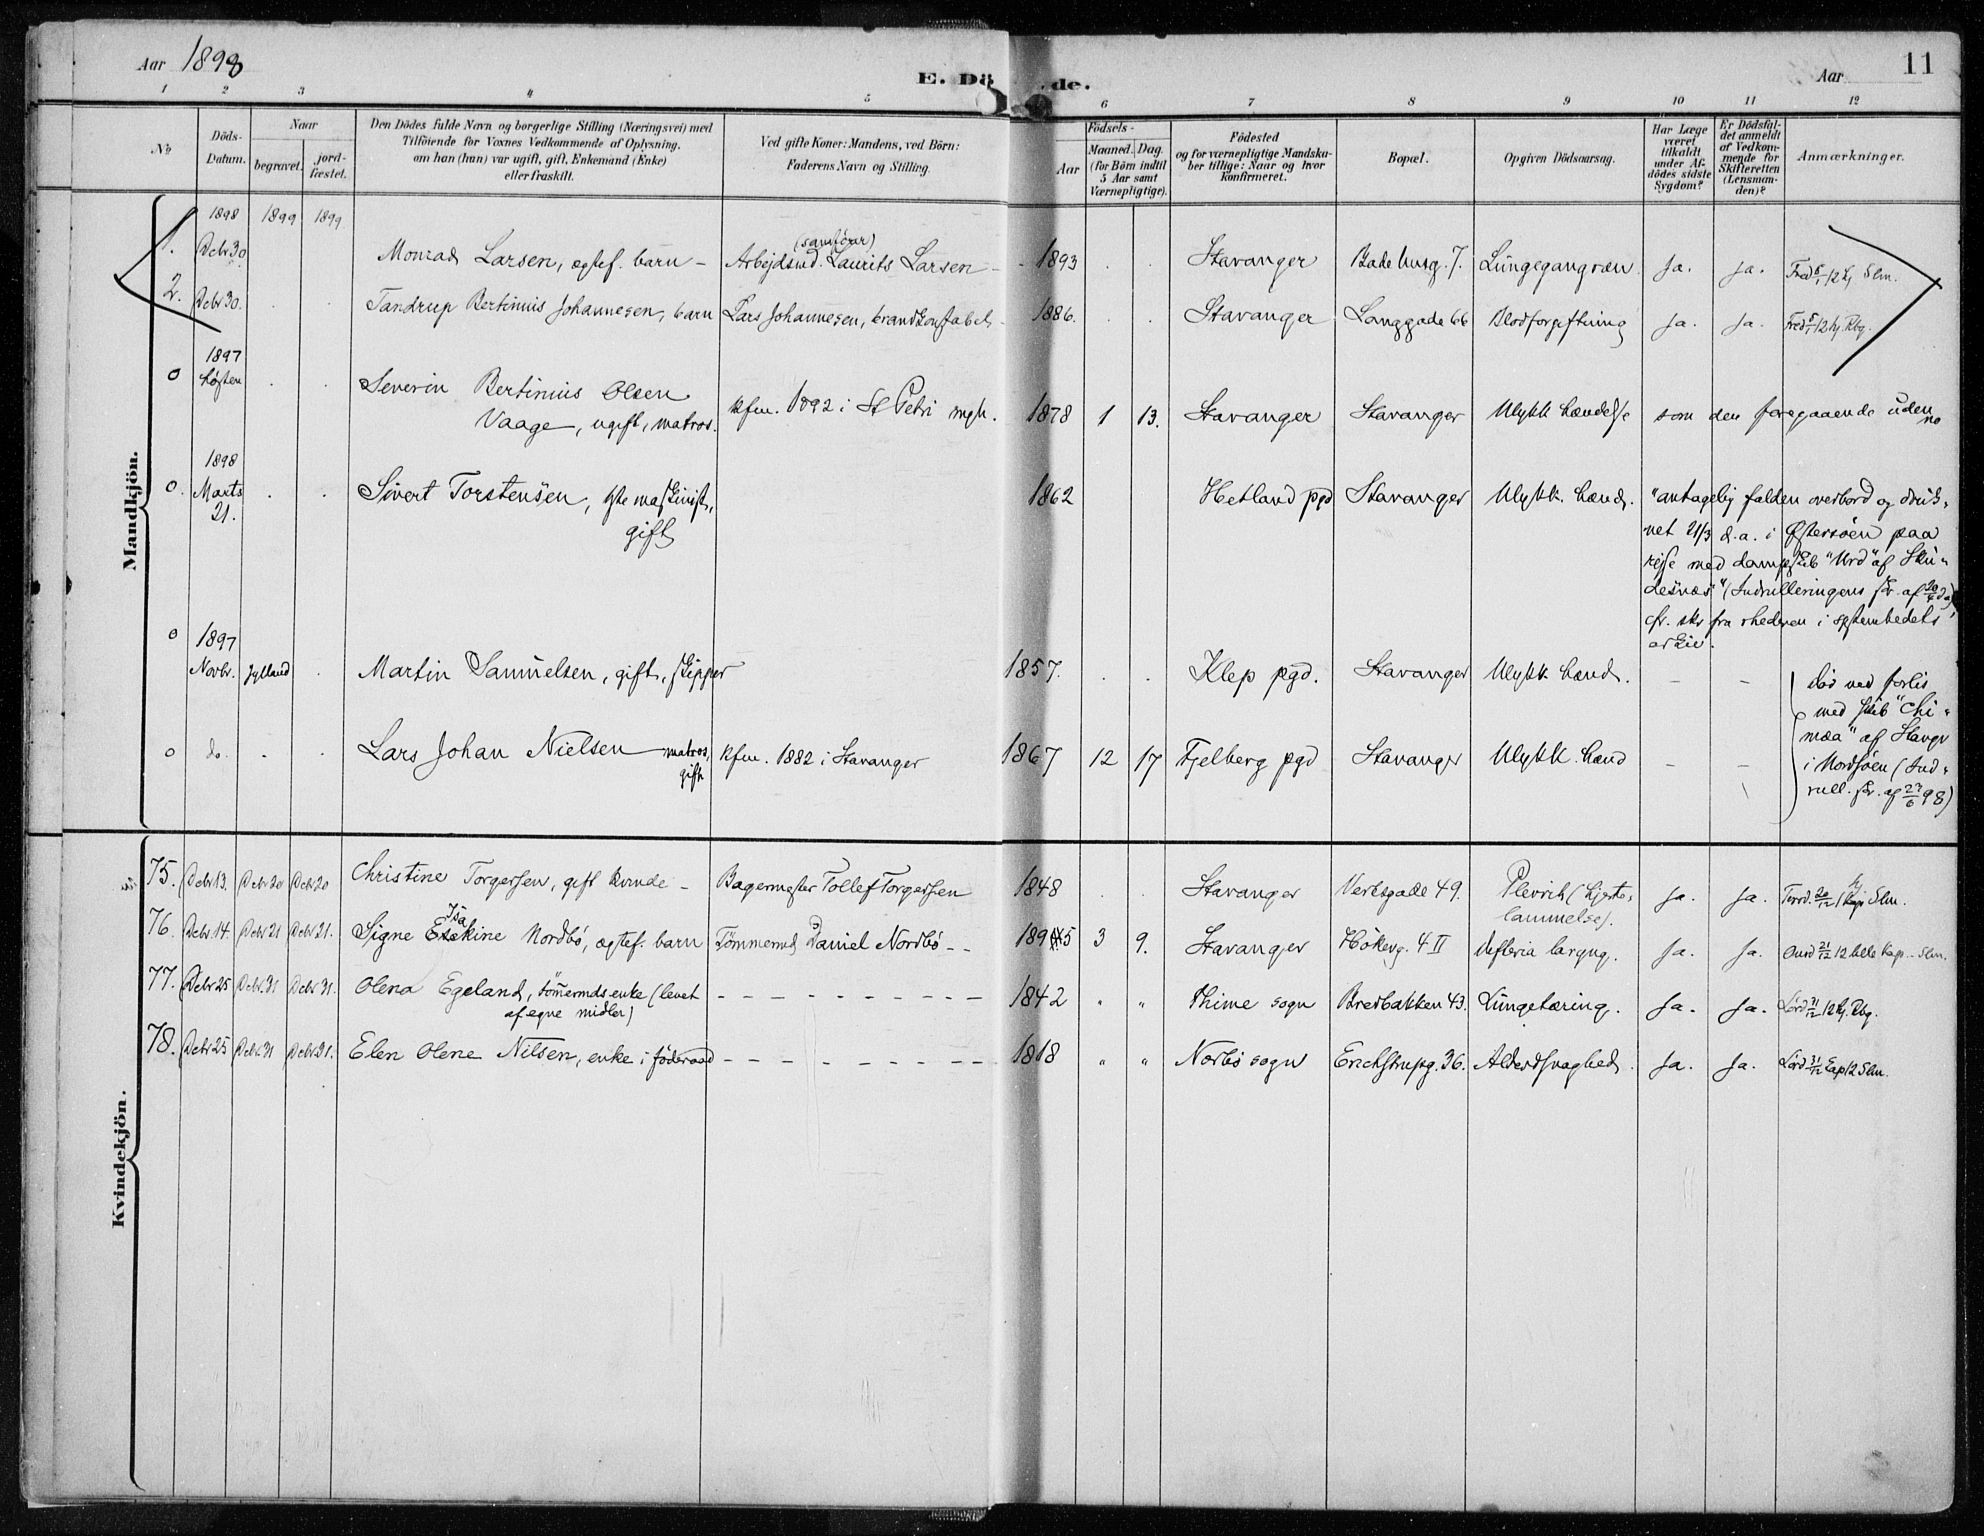 Aar 1898
E. Dö de.
Aar 11
1 2 3 4 5 6 7 8 9 10 11 12
No
Döds-Datum.
Naar
begravet.
jord-fæstet.
Den Dödes fulde Navn og borgerlige Stilling (Næringsvei) med
Tilföiende for Voxnes Vedkommende af Oplysning,
om han (hun) var ugift, gift, Enkemand (Enke)
eller fraskilt.
Ved gifte Koner: Mandens, ved Börn:
Faderens Navn og Stilling.
Födsels-
Aar
Maaned. Dag.
(for Börn indtil
5 Aar samt
Værnepligtige).
Födested
og for værnepligtige Mandska-
ber tillige: Naar og hvor
konfirmeret.
Bopæl.
Opgiven Dödsaarsag.
Har Læge
været
tilkaldt
under Af-
dödes sidste
Sygdom?
Er Dödsfal-
det anmeldt
af Vedkom-
mende for
Skifteretten
(Lensman-
den)?
Anmærkninger.
Mandkjön.
1898 1899 1899
1. Decbr 30 Monrad Larsen, ægtef. barn – Arbejdsmd. Laurits Larsen – 1893 Stavanger Badehusg. 7. Lungegangræn ja. ja. Fred 6/1 12 kj Slm.
2. Decbr 30. Tandrup Bertinius Johannesen, barn Lars Johannesen, brandkonstabel – 1886. Stavanger Langgade 66 Blodforgiftning ja. ja. 12 kj. Rbg.
1897
0 høsten Severin Bertinius Olsen
Vaage, ugift, matros. kfm. 1892 i St Petri mgh. 1878 1 13. Stavanger Stavanger Ulykk hændelse som den foregaaende uden no
1898
0. Marts 21. Sivert Torstensen, maskinist,
gift 1862 Hetland pgd Stavanger Ulykk. hænd. "antagelig falden overbord og druk-
net 21/3 d.a. i Østersöen paa
rejse med dampskib "Urd" af Sku-
desnæs" (Indrulleringens skr. af
cfr. skr fra rhederen i
arkiv.
0 1897
Novbr. Jylland Martin Samuelsen, gift, skipper 1857. Klep pgd. Stavanger Ulykk hænd. – –
död ved forlis
med skib "Chi-
mæa" af Stavgr
i Nordsöen (Ind-
rull. skr. af 27/6 98)
0 do. Lars Johan Nielsen matros, gift kfm. 1882 i Stavanger 1867 12 17 Fjelberg pgd Stavanger Ulykk. hænd – –
Kvindekjön.
75. Decbr 13. Decbr 20 Decbr 20 Christine Torgersen, gift kvinde – Bagermester Tollef Torgersen 1848 Stavanger Verksgade 49. Plevrit (hjerte-
lammelse). ja. ja. 20/12 Slm.
76. Decbr 14. Decbr 21 Decbr 21. Signe Isa Nordbö, ægtef. barn Tömmermd Daniel Nordbö – – 1895 3 9. Stavanger Hökerg. 4 II defteria laryng. ja. ja. Onsd 21/12 12 kap. – Slm.
77. Decbr 25 Decbr. 31 Decbr 31. Olena Egeland, tömermds enke (levet
af egne midler) – – – 1842 " " Thime sogn Bredbakken 43. Lungetæring. ja. ja. Lörd 31/12 12 kj. Rbg.
78. Decbr 25 Decbr 31 Decbr 31. Elen Olene Nilsen, enke i föderaad – – – 1818 " " Norbö sogn Erichstrupsg. 36. Alderdsvaghed. ja. ja. Lörd 31/12 Kap 12 Slm.